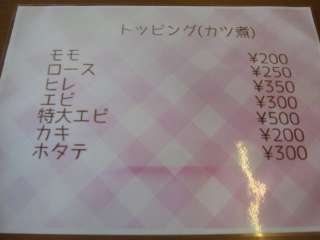 トッピング(カツ煮)
モモ ¥200
ロース ¥250
ヒレ ¥350
エビ ¥300
特大エビ ¥500
カキ ¥200
ホタテ ¥300